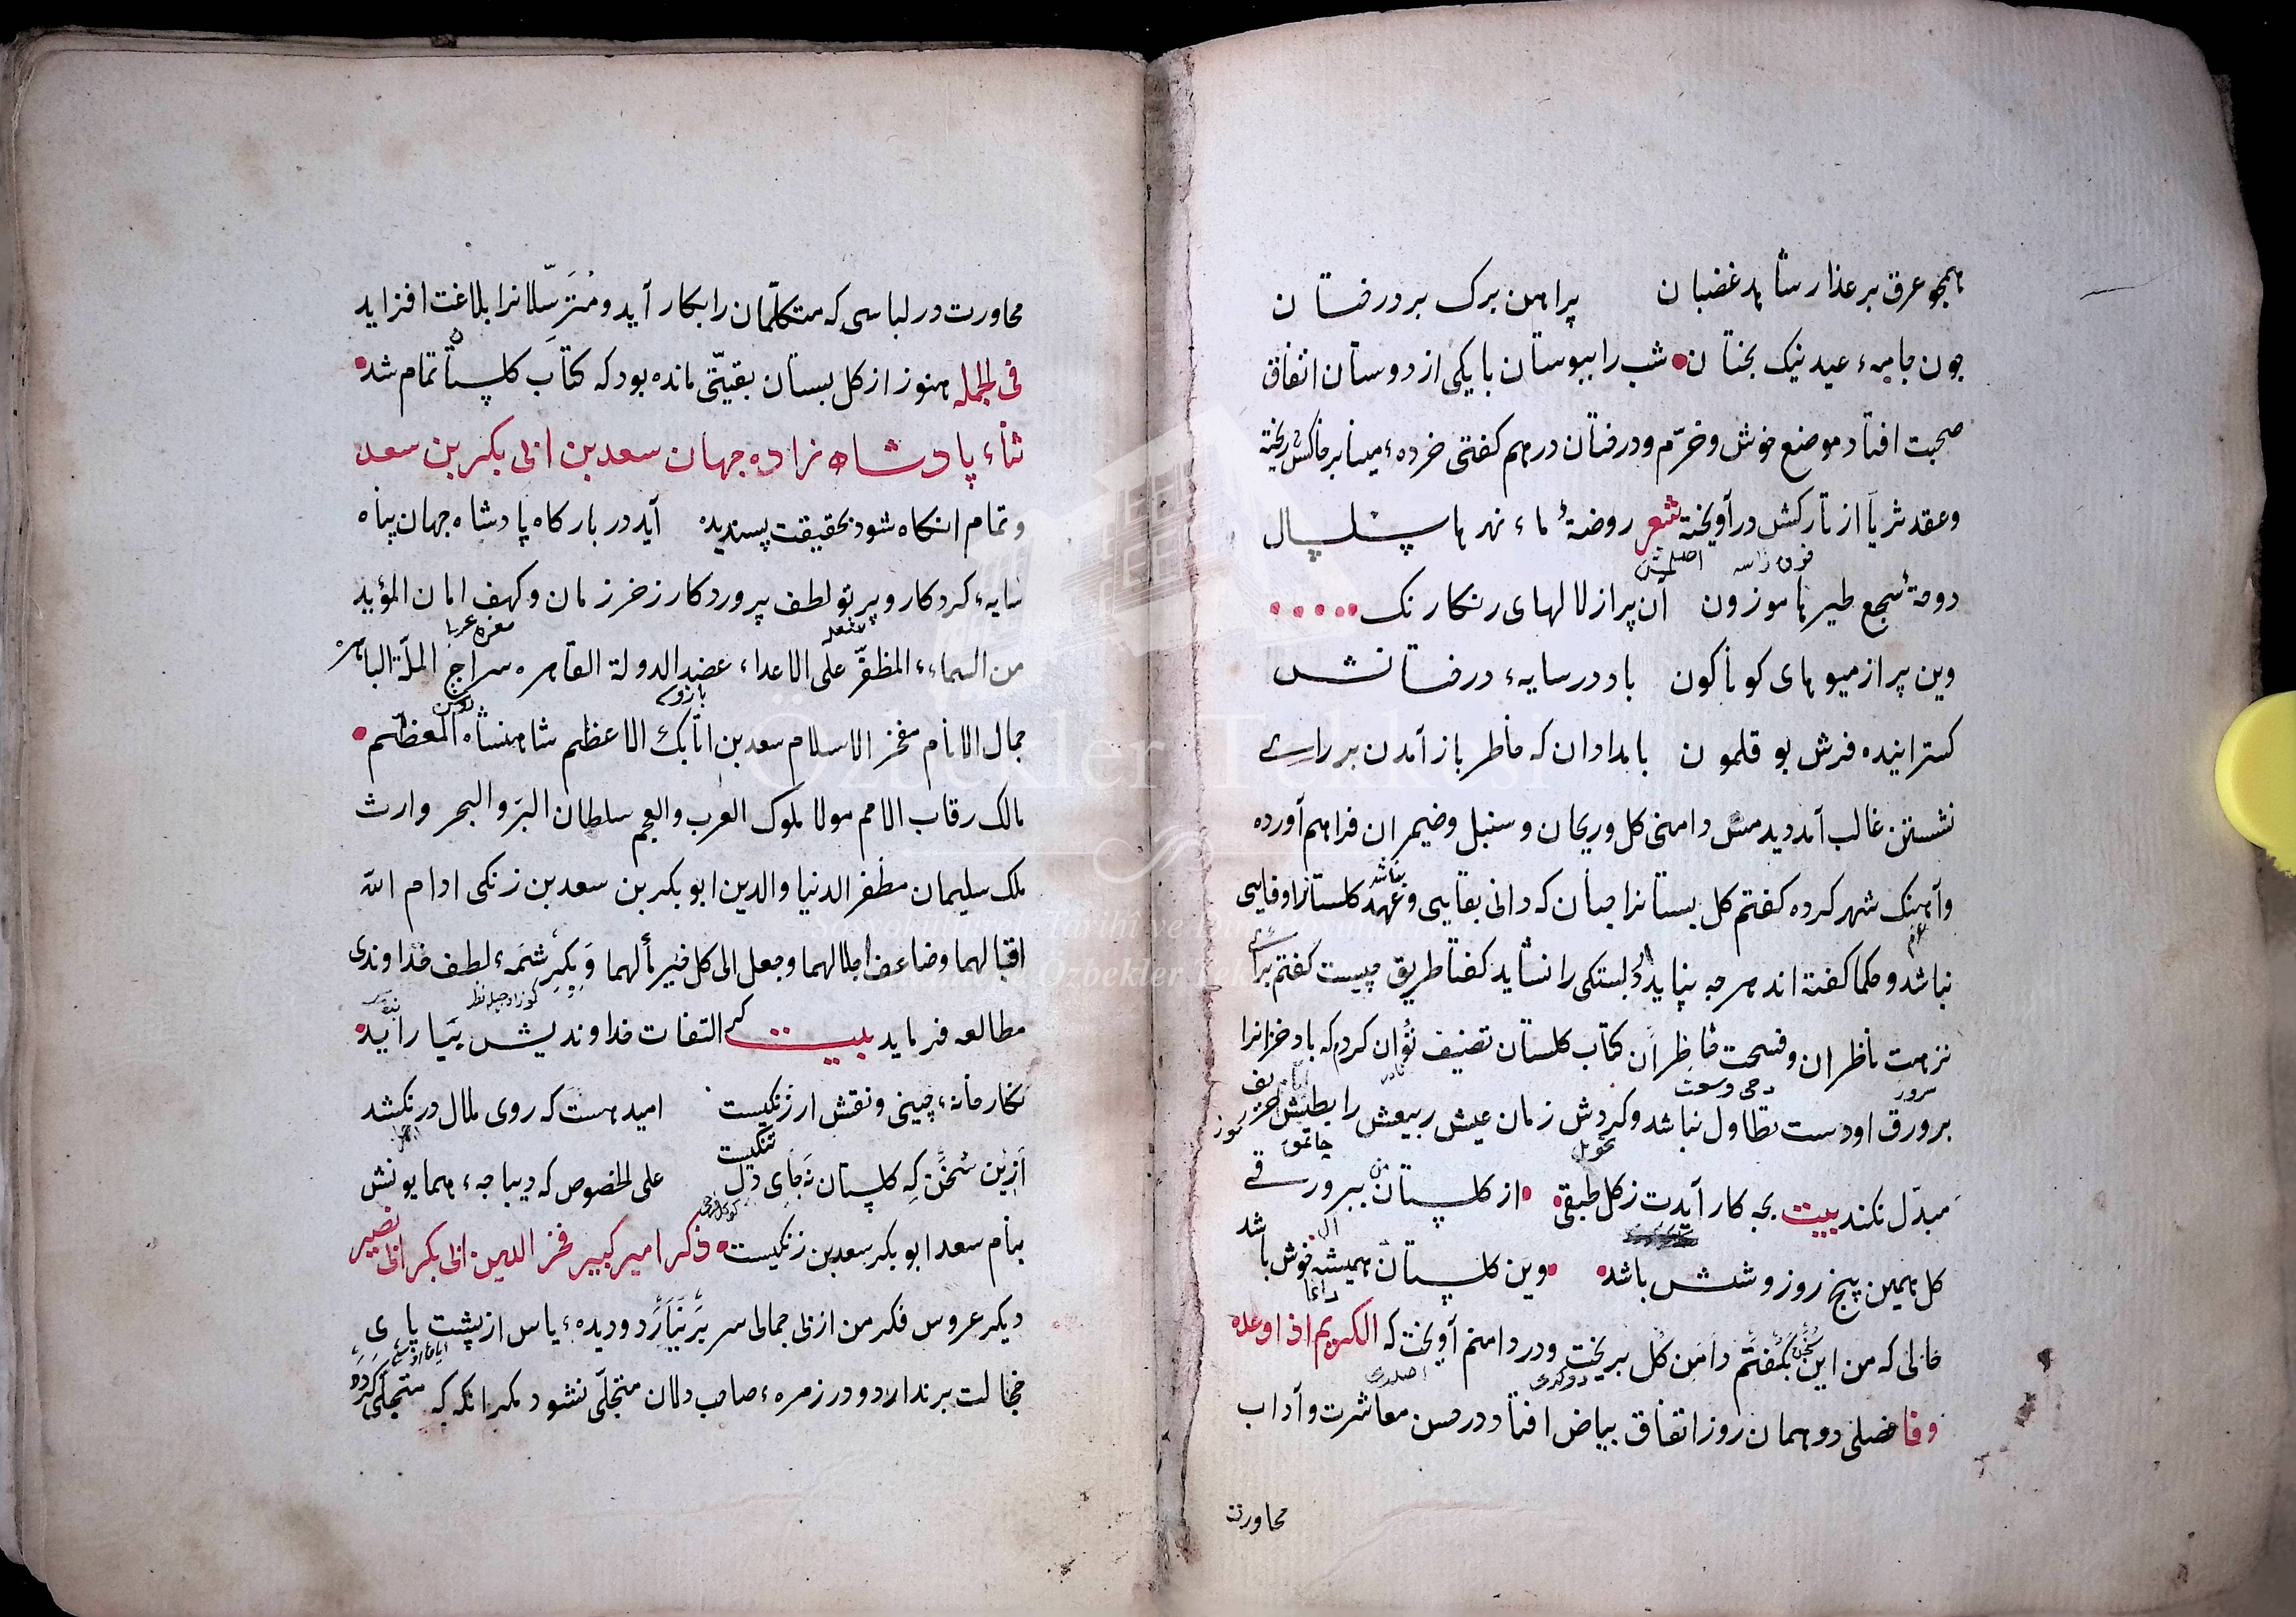 همچو عرق بر عذار شاهد غضبان پراهن برک بر درختان
چون جامهء عید نیک بختان شب را ببوستان با یکی از دوستان اتفاق
صحبت افتاد موضع خوش و خرّم و درختان درهم کفتی خردهء مینا بر خاکش ریخته
وعقد ثریا از تارکش در آویخته شعر روضةٌ ماء نهرها سلسال
دوحةٌ سجع طیرها موزون آن پر از لالهای رنکارنک
وین پر از میوهای کوناکون باد در سایهء درختانش
کسترانیده فرش بوقلمون بامدادان که خاطر باز آمدن بر رای
نشستن غالب آمد دیدمش دامنی کل و ریحان و سنبل و ضیمران فراهم آورده
وآهنک شهر کرده کفتم کل بستانرا چنان که دانی بقایی وعهد کلستانرا وفایی
نباشد
نباشد وحکما کفته اند هر چه نپاید دلبستکی را نشاید کفتا طریق چیست کفتم برای
نزهت ناظران وفسحت خاطران کتاب کلستان تصنیف توان کردم که باد خزانرا
سرور وسعت
بر ورق او دست تطاول نباشد وکردش زمان عیش ربیعش را بطیش خریف
مبدّل نکند بیت بچه کار آیدت ز کل طبقی از کلستان من ببر ورقی
کل همین پنج روز و شش باشد وین کلستان همیشه خوش باشد
حالی که من این سخن بکفتم دامن کل بریخت ودر دامنم آویخت که الکریم اذا وعده
وفا فصلی دو همان روز اتفاق بیاض افتاد در حسن معاشرت وآداب
محاورت
محاورت در لباسی که متکلّمان را بکار آید ومترسّلانرا بلاغت افزاید
فی الجمله هنوز از کل بستان بقیّتی مانده بود که کتاب کلستان تمام شد
ثناء پادشاه زاده جهان سعد بن ابی بکر بن سعد
وتمام انکاه شود بحقیقت پسندیده آید در بارکاه پادشاه جهان پناه
سایهء کردکار و پرتو لطف پروردکار زخر زمان وکهف امان المؤید
من السماء المظفّر علی الاعداء عضد الدولة القاهره سراج الملّة الباهره
بازوی
جمال الانام مفخر الاسلام سعد بن اتابک الاعظم شاهنشاه المعظّم
مالک رقاب الامم مولا ملوک العرب والعجم سلطان البرّ والبحر وارث
ملک سلیمان مظفر الدنیا والدین ابو بکر بن سعد بن زنکی ادام الله
اقبالهما وضاعف اجلالهما وجعل الی کل خیر مآلهما وبکرشمهء لطف خداوندی
مطالعه فرماید بیت کر التفات خداوندیش بیاراید
نکارخانهء چینی ونقش ارژنکیست امید هست که روی ملال در نکشد
ازین سخن که کلستان نه جای دل تنکیست علی الخصوص که دیباجهء همایونش
بنام سعد ابو بکر سعد بن زنکیست ذکر امیر کبیر فخر الدین ابی بکر ابی نصیر
دیکر عروس فکر من از بی جمالی سر بر نیارد و دیدهء یاس از پشت پای
خجالت بر ندارد و در زمرهء صاحب دلان متجلّی نشود مکر انکه که متحلّی کردد